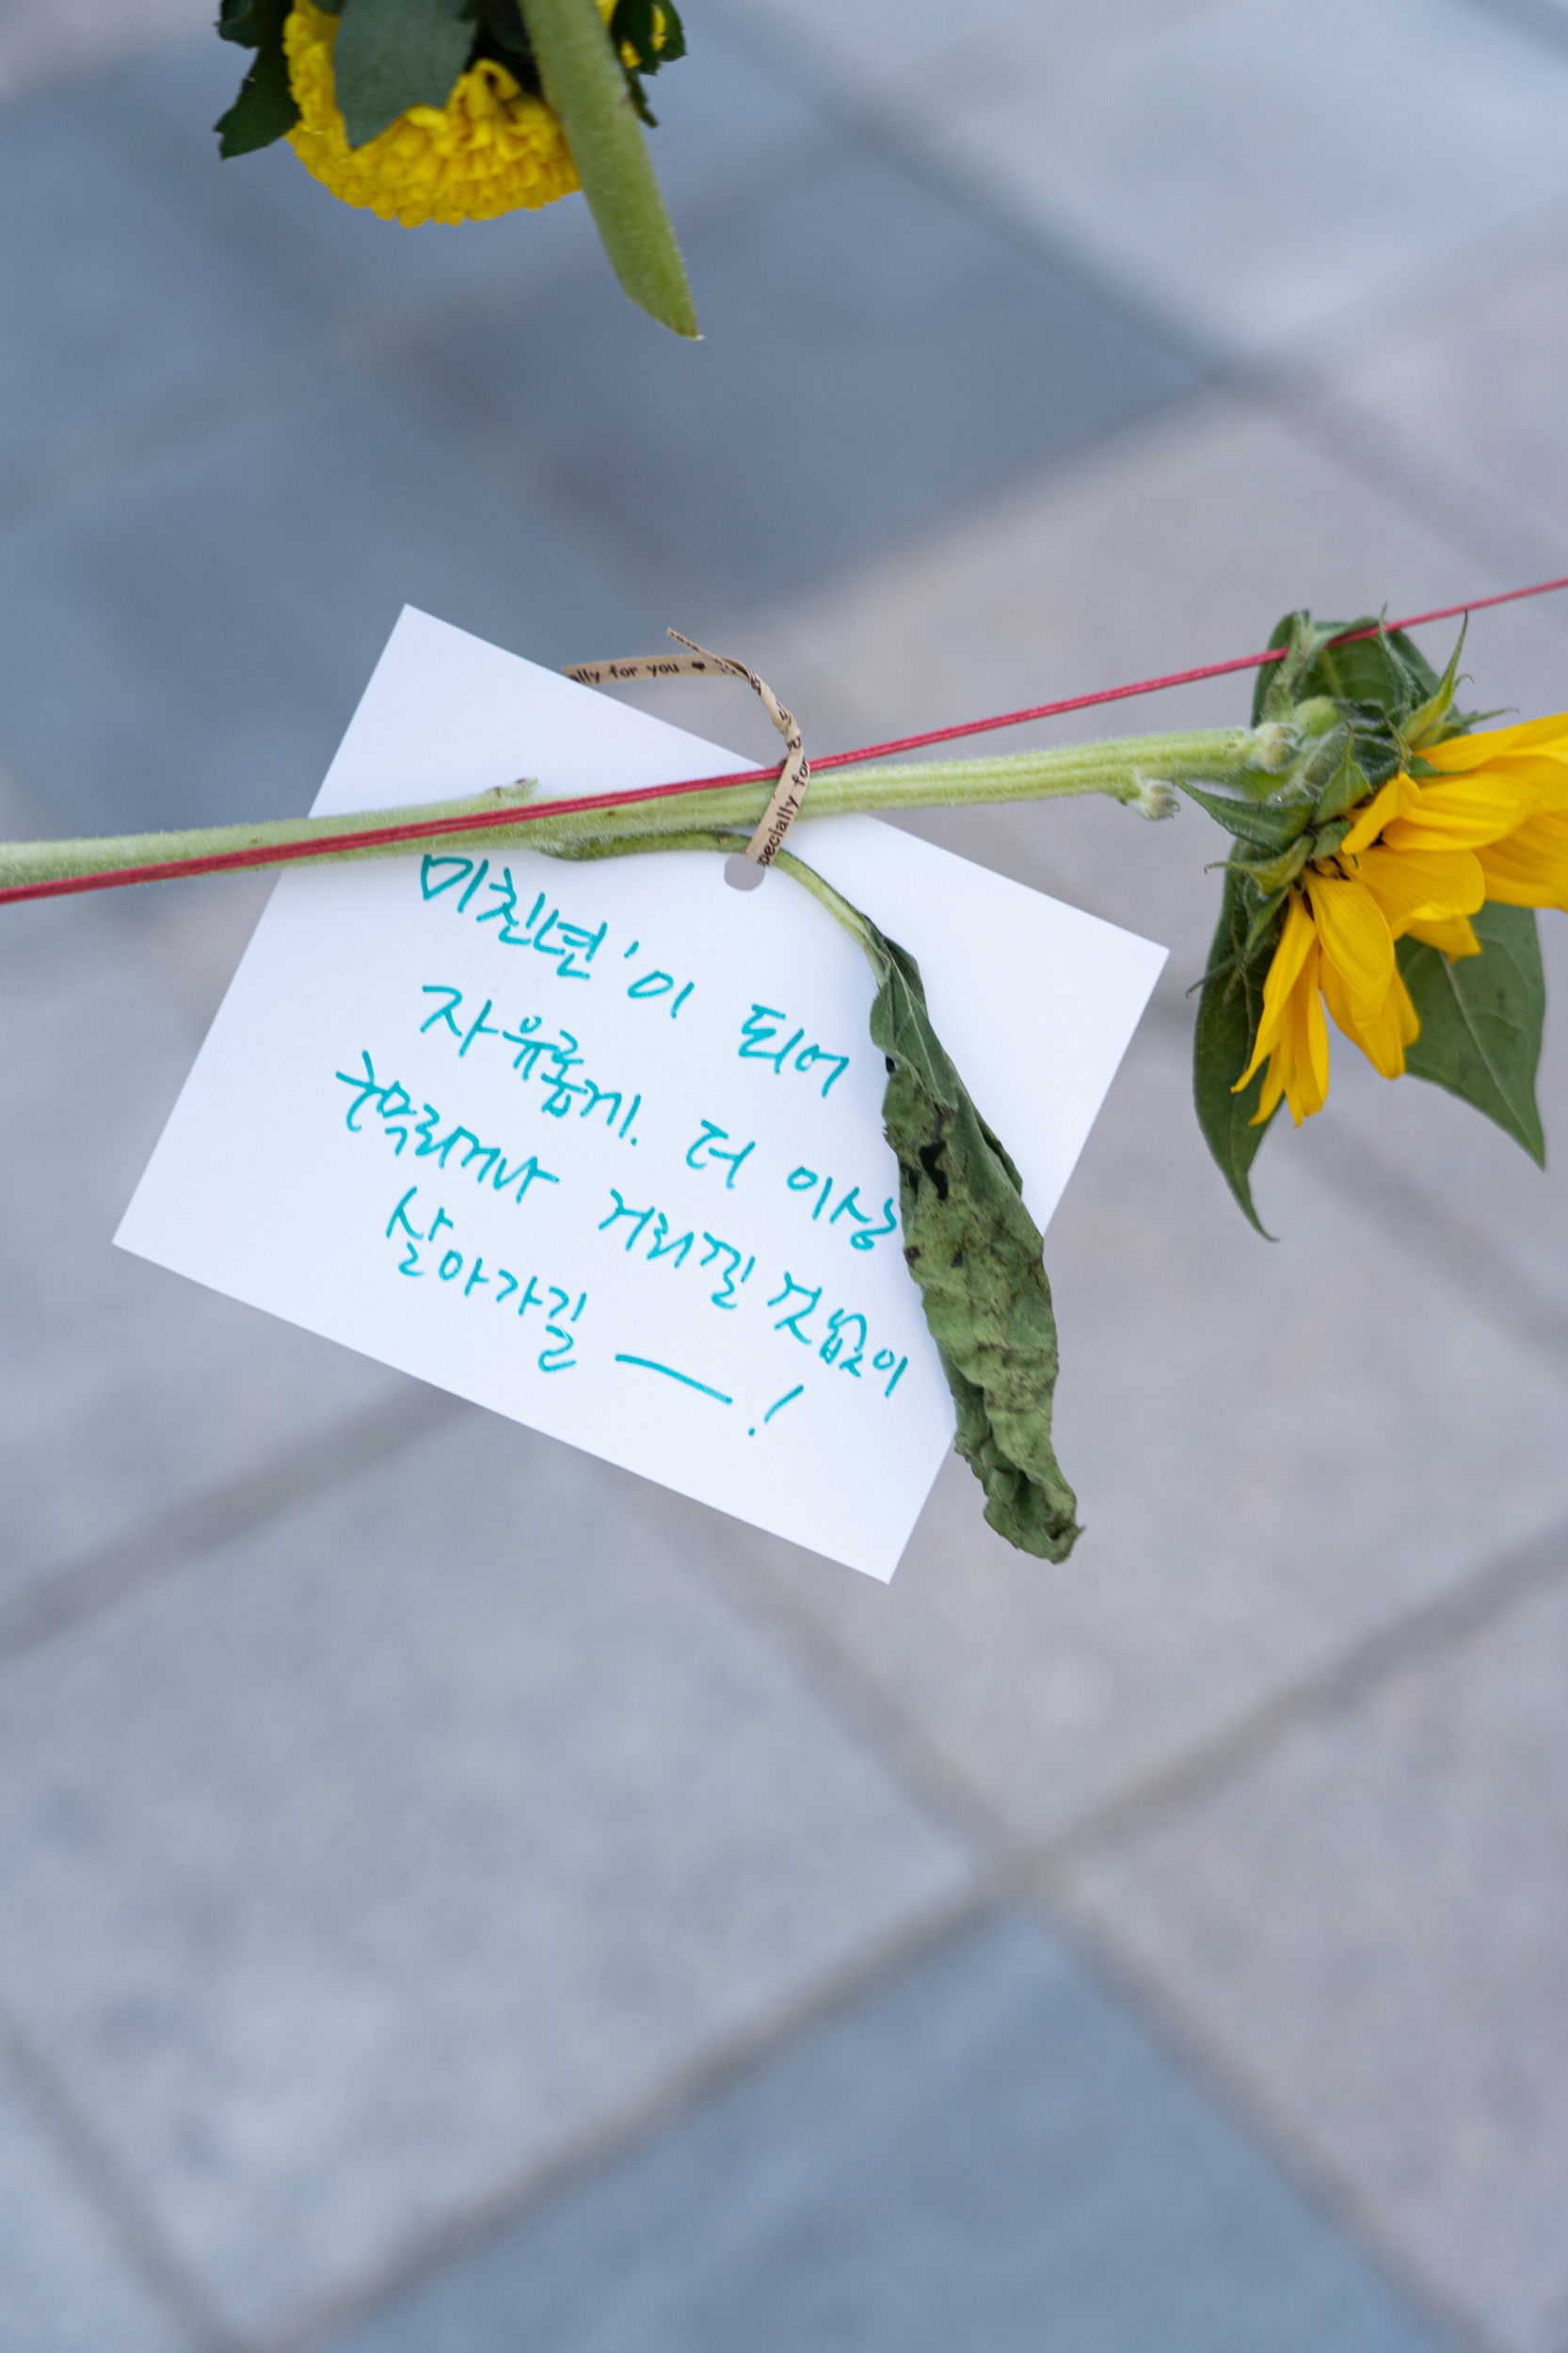 lly for you ♥
pecially fo
미친년'이 되어
자유롭게. 더 이상
속박되거나 거리낄 것 없이
살아가길 — !